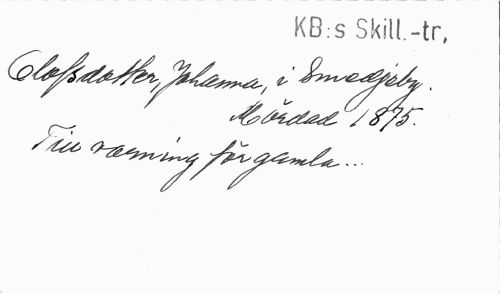 KB:s Skill.-tr,
Olofsdotter, Johanna, i Smedjeby.
Mördad 1875.
Till varning för gamla...